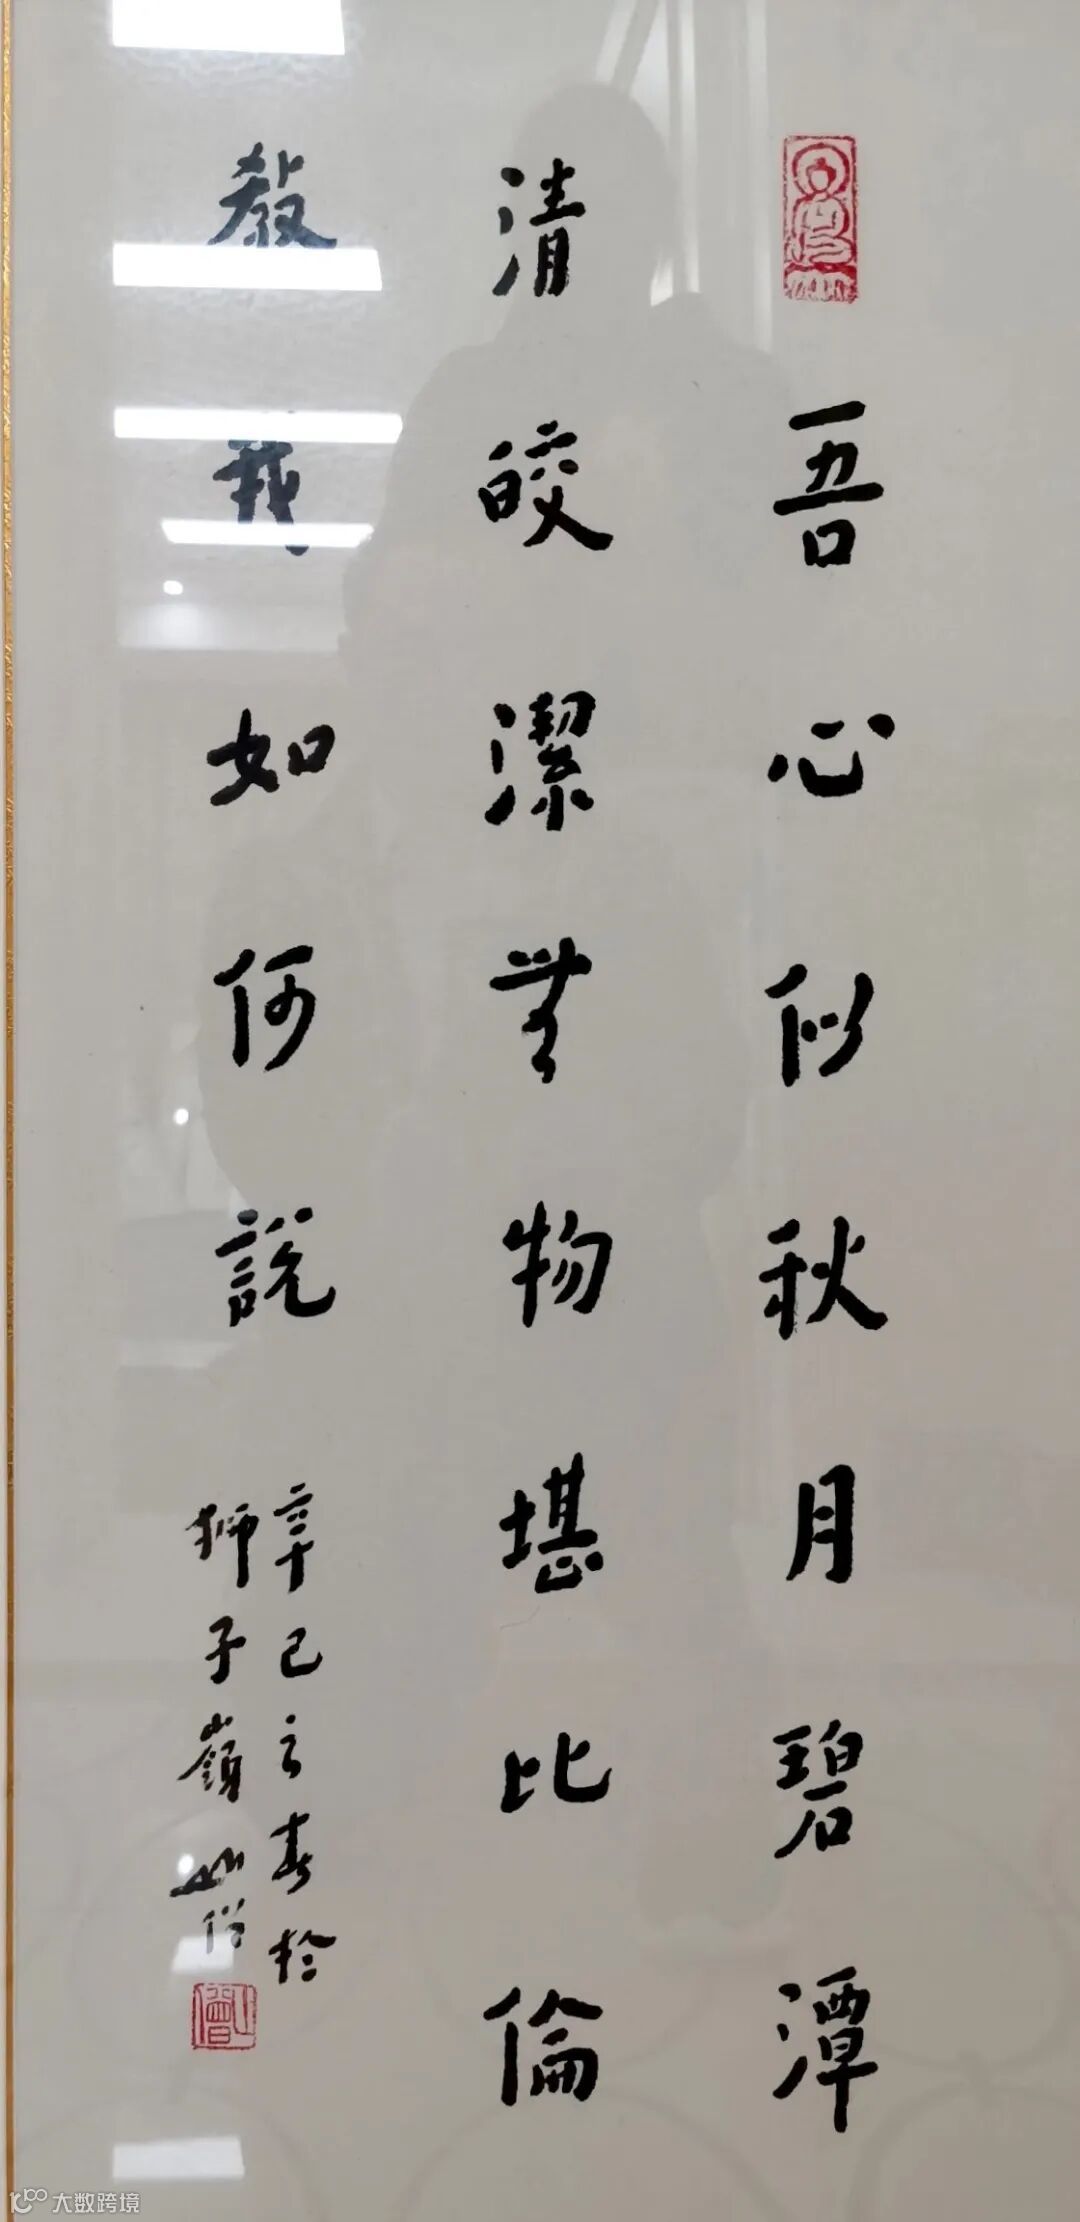 吾心似秋月碧潭
清皎潔無物堪比倫
教我如何說
辛巳之春於
狮子嶺山僧
大数跨境